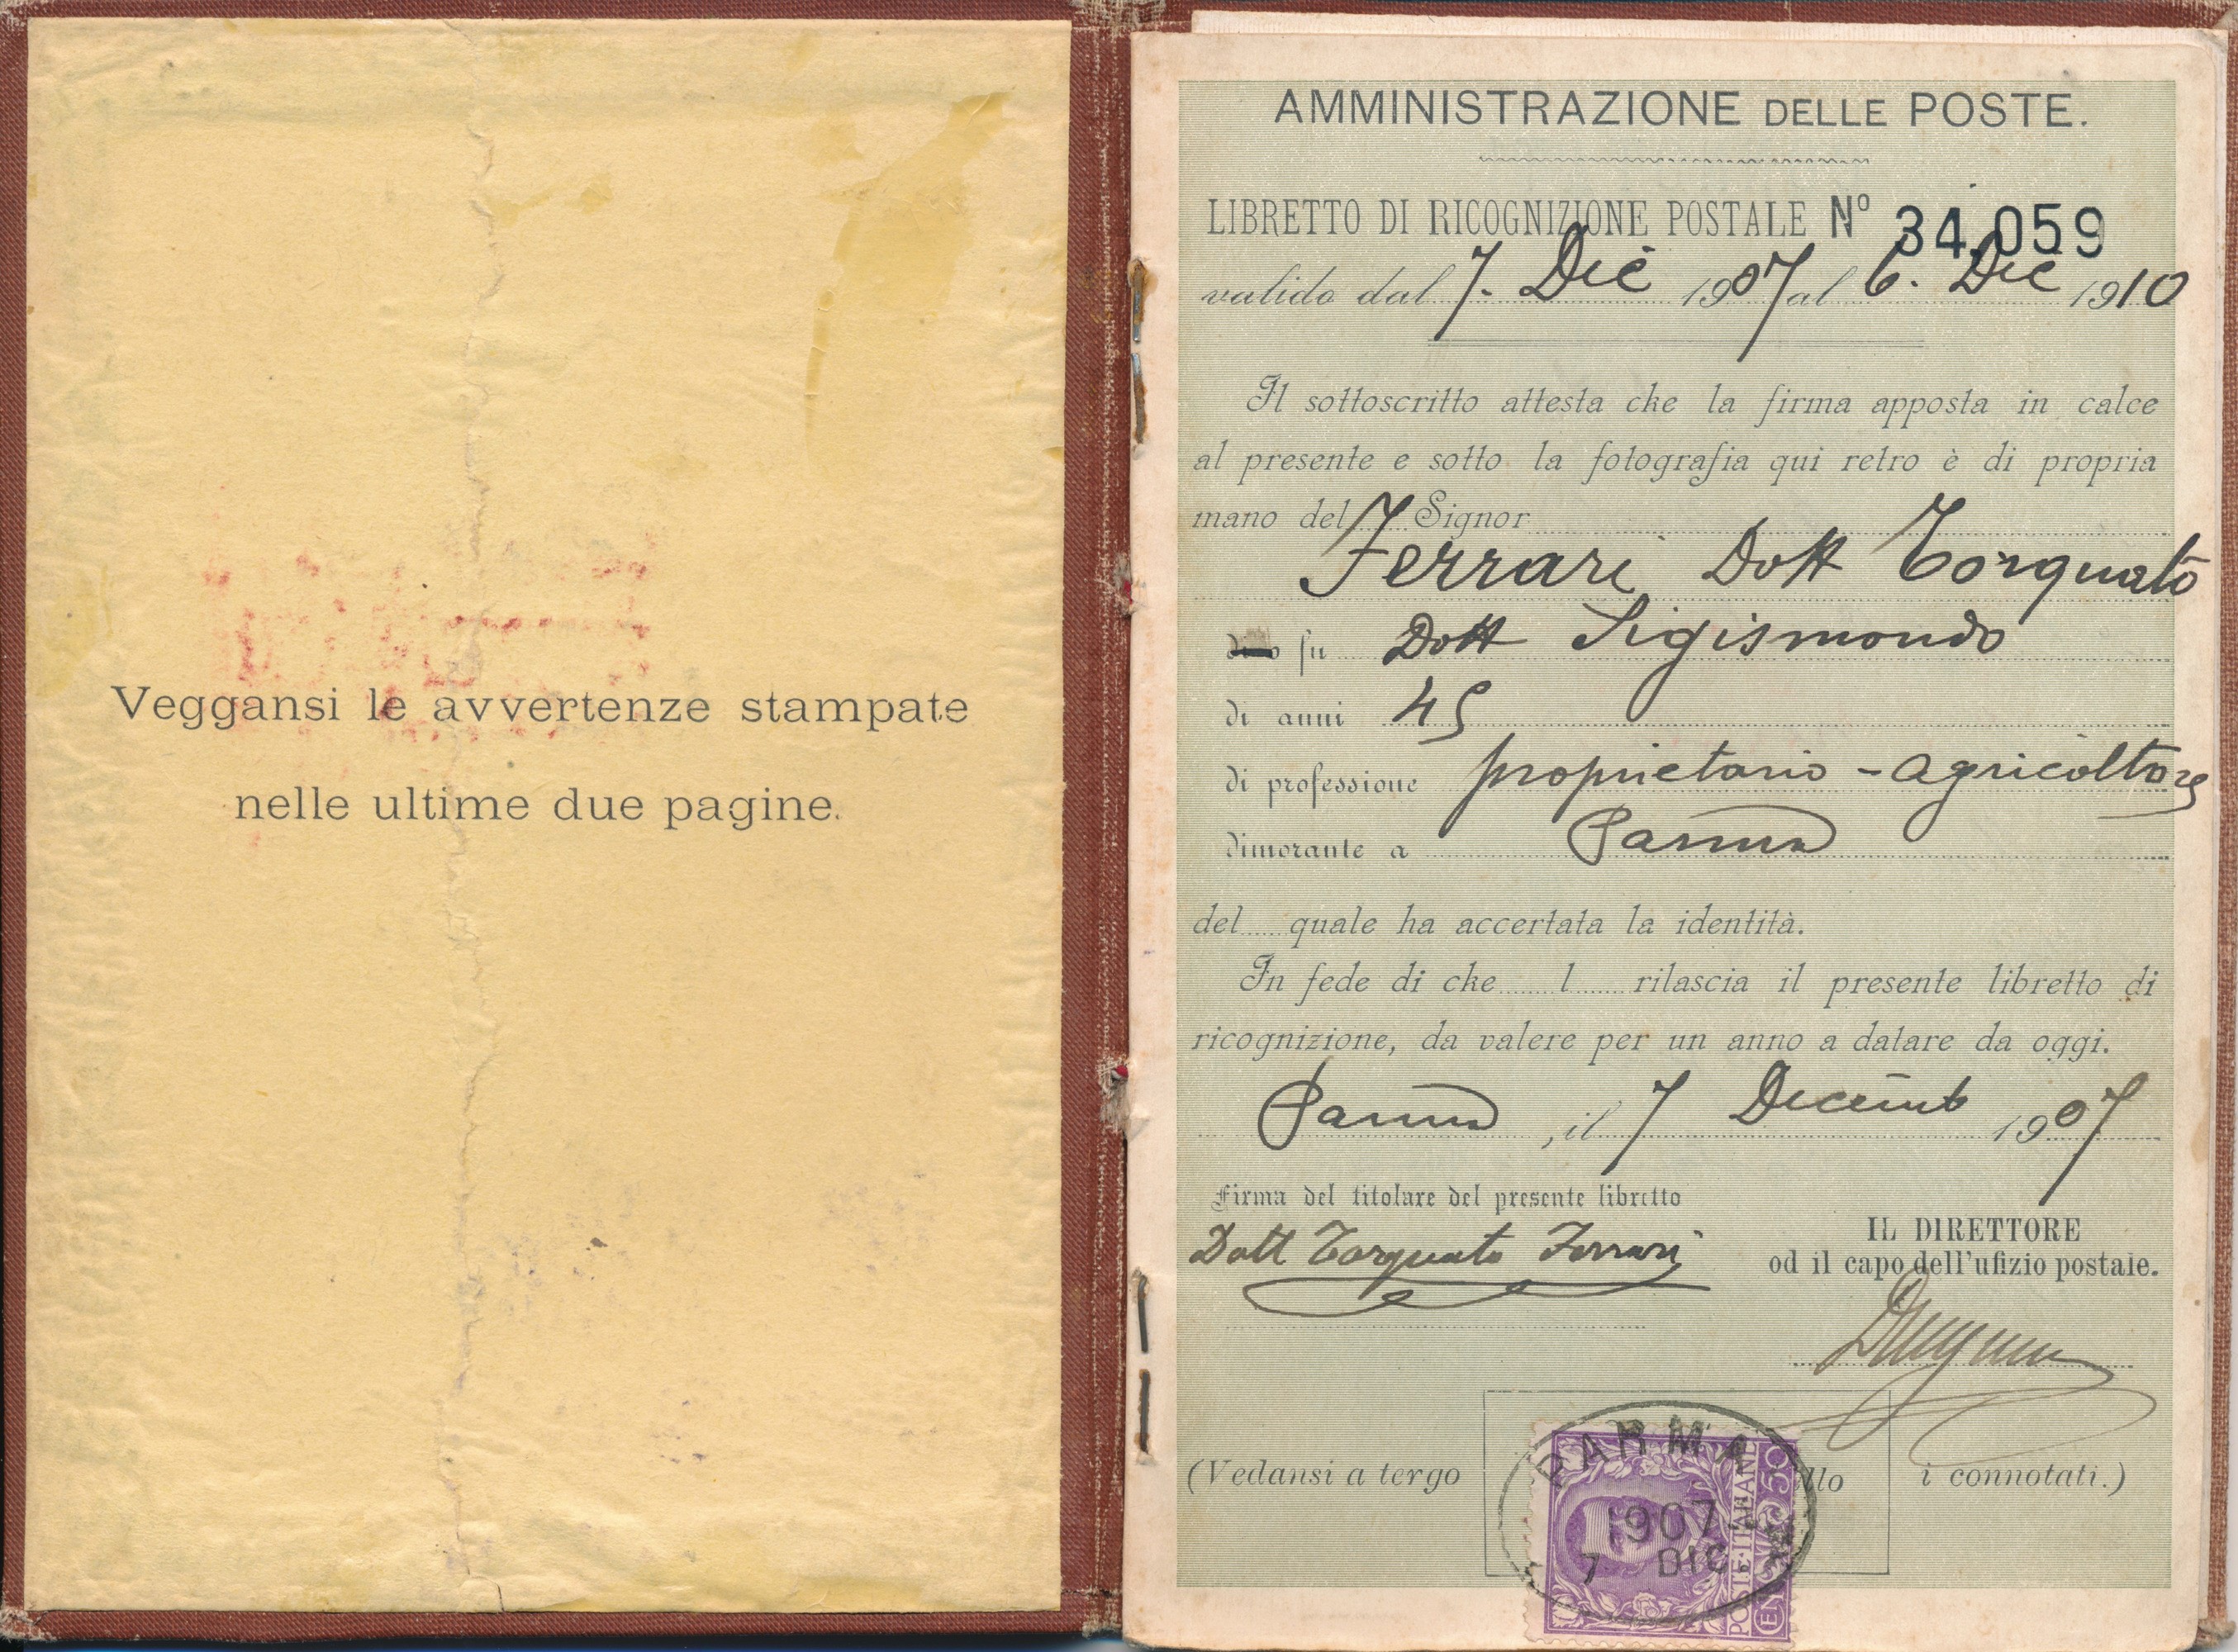 Veggansi le avvertenze stampate
nelle ultime due pagine.
AMMINISTRAZIONE DELLE POSTE.
LIBRETTO DI RICOGNIZIONE POSTALE Nº 34.059
valido dal 7. Dic 1907 al 6. Dic 1910
Il sottoscritto attesta che la firma apposta in calce
al presente e sotto la fotografia qui retro è di propria
mano del Signor
Ferrari Dott Torquato
fu Dott Sigismondo
di anni 45
di professione proprietario - agricoltore
dimorante a Parma
del quale ha accertata la identità.
In fede di che l rilascia il presente libretto di
ricognizione, da valere per un anno a datare da oggi.
Parma, il 7 Decemb 1907
Firma del titolare del presente libretto
Dott Torquato Ferrari
IL DIRETTORE
od il capo dell'ufizio postale.
(Vedansi a tergo i connotati.)
PARMA
1907
7 DIC
POSTE ITALIANE
CENT. 50